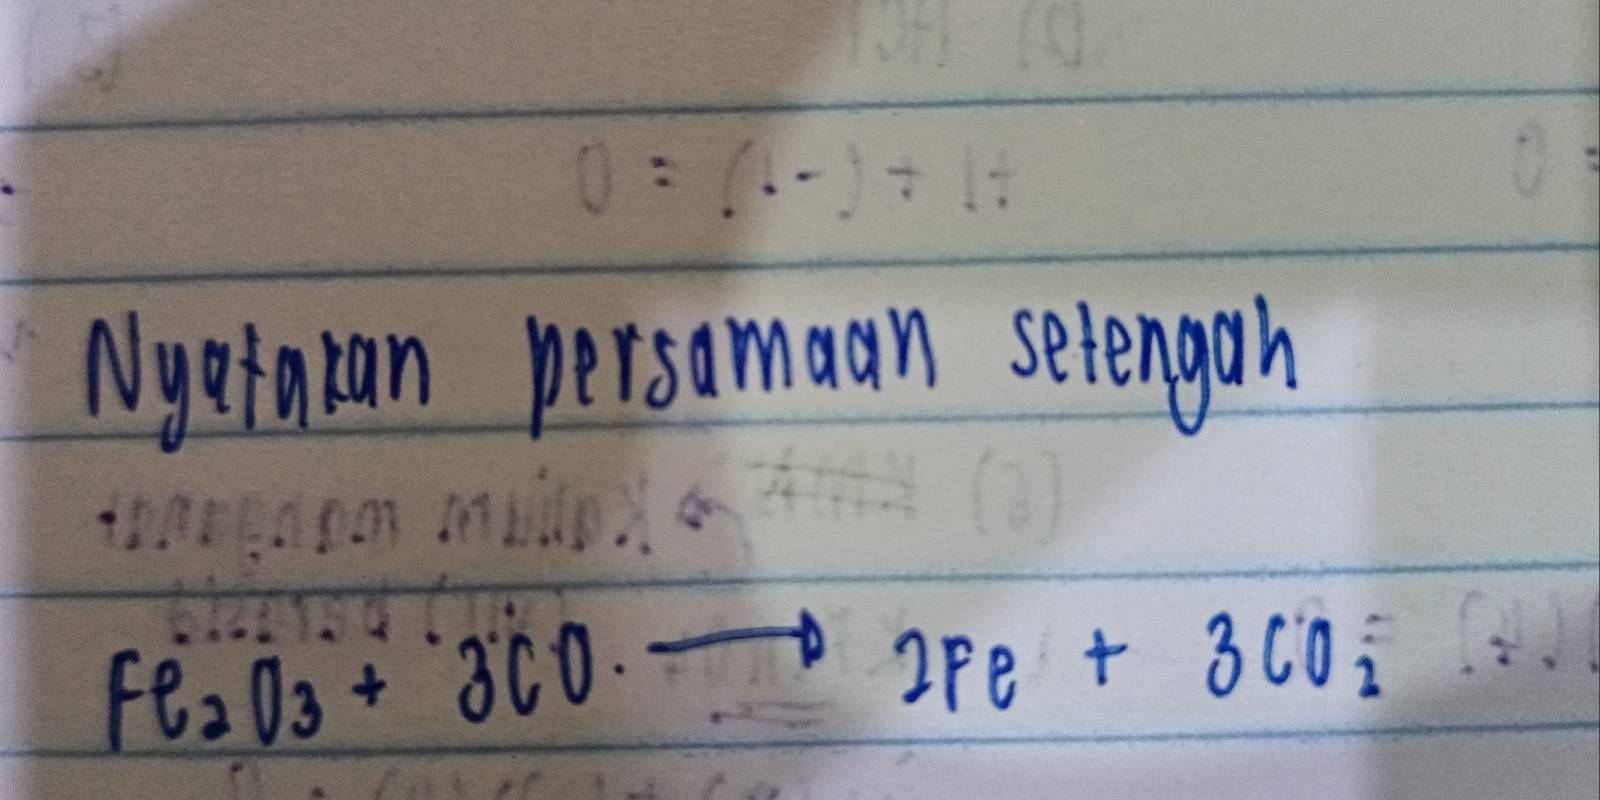 Nyatakan persamaan setengah
Fe₂O₃ + 3CO → 2Fe + 3CO₂